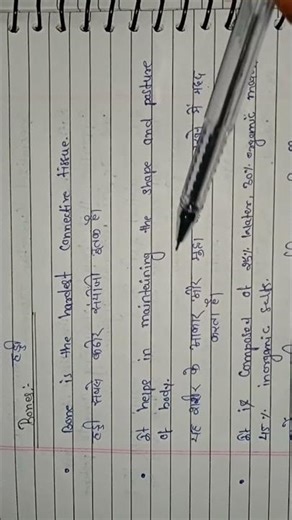 Bones:- हड्डी
• Bone is the hardest connective tissue.
हड्डी सबसे कठोर संयोजी ऊतक है।
• It helps in maintaining the shape and posture
of body.
यह शरीर के आकार और मुद्रा रखने में मदद
करता है।
• It is composed of 25% water, 30% organic
45% inorganic salts.